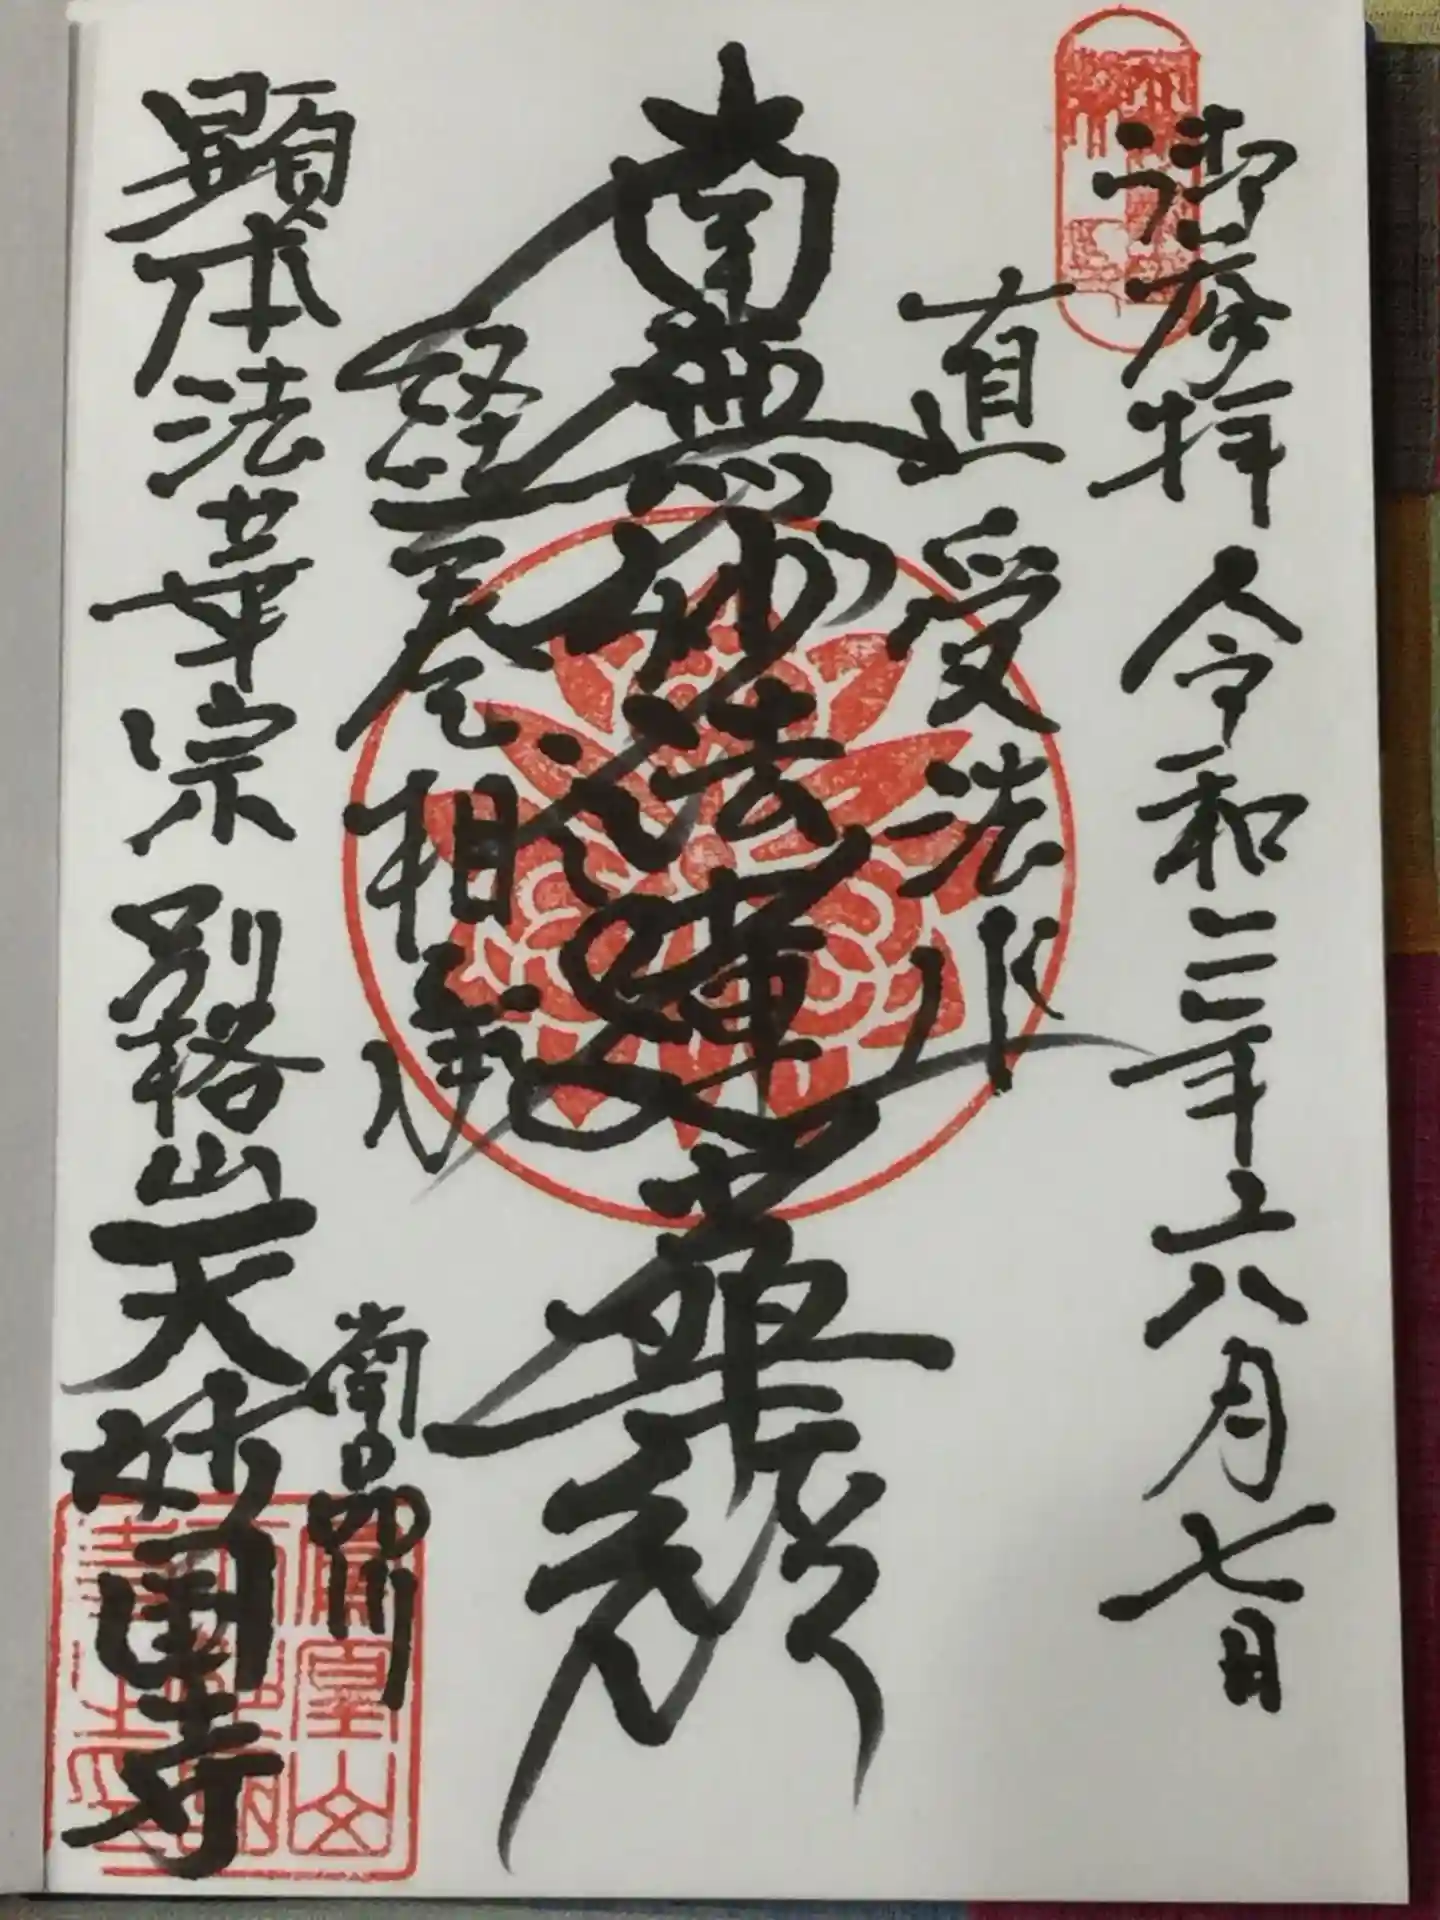 御廟拝 令和二年六月七日
直受法水
南無妙法蓮華経
経巻相承
南品川
顕本法華宗 別格山 天妙国寺
鳳凰山